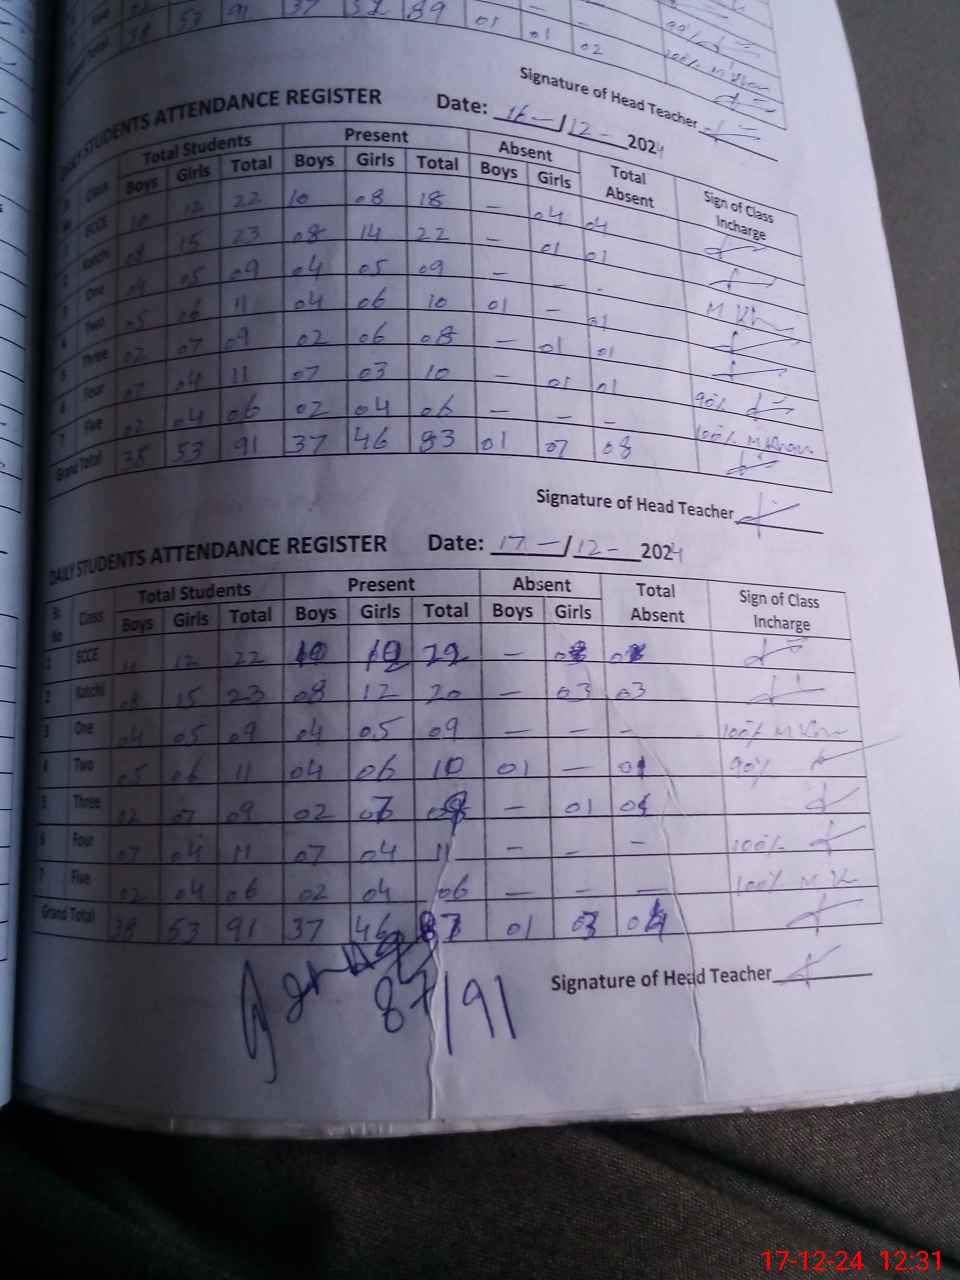 57 91 37 52 89 01 - -
01 02 100% M Khan
Signature of Head Teacher
DAILY STUDENTS ATTENDANCE REGISTER Date: 16-/12-2024
Class Total Students Present Absent Total Absent Sign of Class Incharge
Boys Girls Total Boys Girls Total Boys Girls
ECCE 10 12 22 10 08 18 - 04 04
Katchi 08 15 23 08 14 22 - 01 01
One 04 05 09 04 05 09 - - - M Khan
Two 05 06 11 04 06 10 01 - 01
Three 02 07 09 02 06 08 - 01 01
Four 07 04 11 07 03 10 - 01 01 90%
7 Five 02 04 06 02 04 06 - - - 100% M Khan
Grand Total 38 53 91 37 46 83 01 07 08
Signature of Head Teacher
DAILY STUDENTS ATTENDANCE REGISTER Date: 17-/12-2024
Sr. No Class Total Students Present Absent Total Absent Sign of Class Incharge
Boys Girls Total Boys Girls Total Boys Girls
1 ECCE 12 22 22 -
2 Katchi 08 15 23 08 12 20 - 03 03
3 One 04 05 09 04 05 09 - - - 100% M Khan
4 Two 05 06 11 04 06 10 01 - 01 90%
5 Three 02 07 09 02 - 01
6 Four 07 04 11 07 04 11 - - - 100%
7 Five 02 04 06 02 04 06 - - - 100% M K
Grand Total 38 53 91 37 46 87 01
Signature of Head Teacher
87/91
17-12-24 12:31